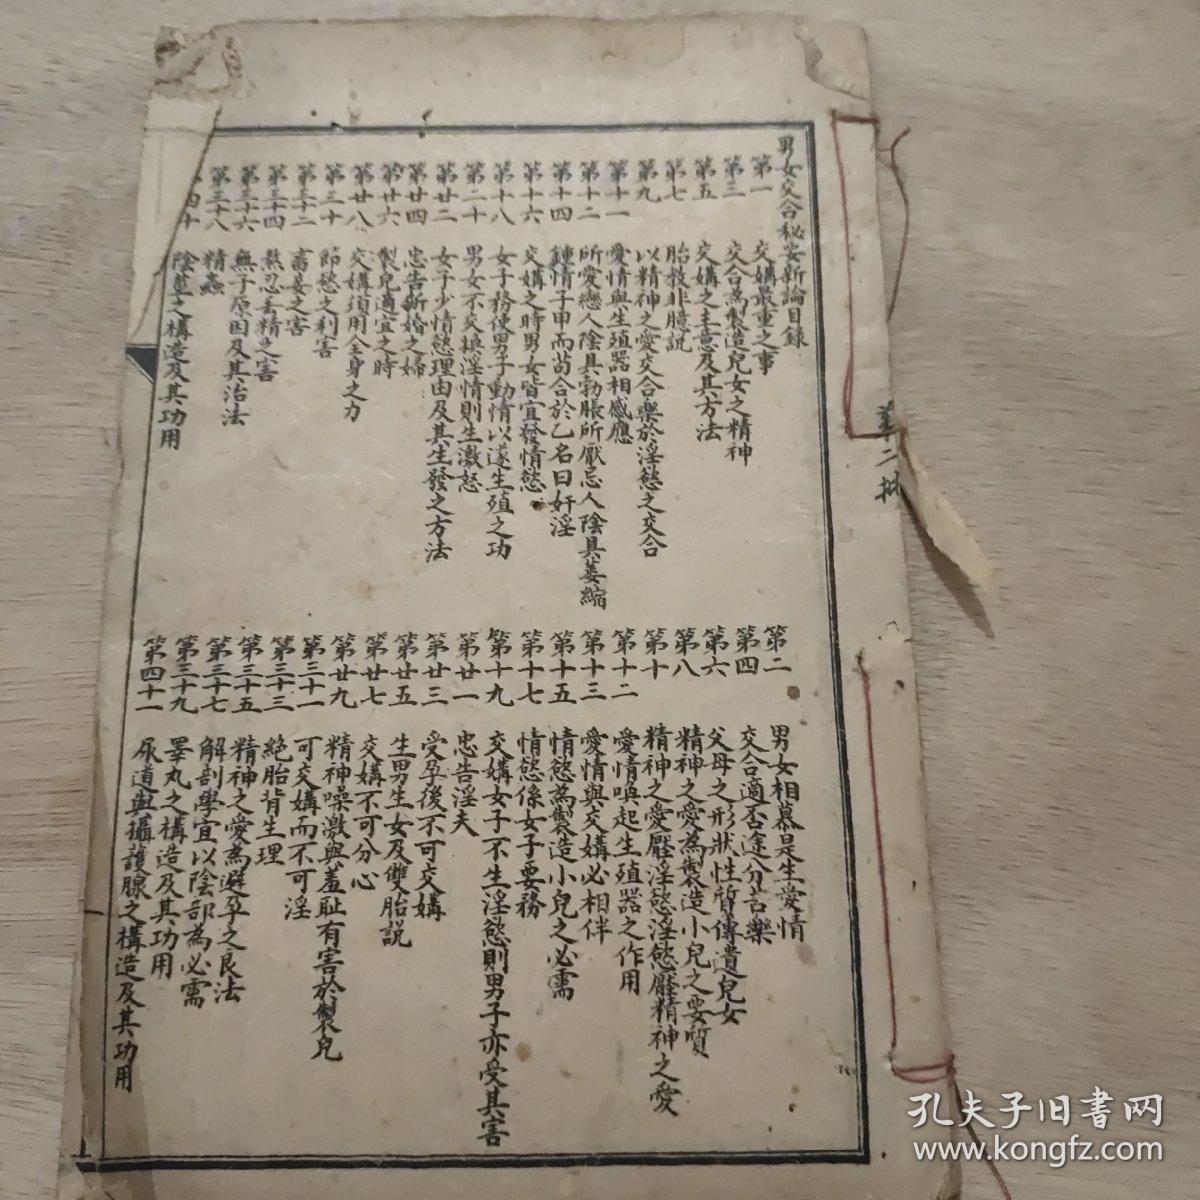 男女交合秘要新論目錄
第一 交媾最重之事
第二 男女相慕是生愛情
第三 交合為製造兒女之精神
第四 交合適否途分苦樂
第五 交媾之主意及其方法
第六 父母之形狀性質傳遺兒女
第七 胎教非臆説
第八 精神之愛為製造小兒之要質
第九 以精神之愛交合樂於淫慾之交合
第十 精神之愛壓淫慾淫慾壓精神之愛
第十一 愛情與生殖器相感應
第十二 愛情喚起生殖器之作用
第十二 所愛戀人陰具勃脹所厭忌人陰具萎縮
第十三 愛情與交媾必相伴
第十四 鍾情子甲而苟合於乙名曰奸淫
第十五 情慾為製造小兒之必需
第十六 交媾之時男女皆宜發情慾
第十七 情慾係女子要務
第十八 女子務使男子動情以遂生殖之功
第十九 交媾女子不生淫慾則男子亦受其害
第二十 男女不交換淫情則生激怒
第廿一 忠告淫夫
第廿二 女子少情慾理由及其生發之方法
第廿三 受孕後不可交媾
第廿四 忠告新婚之婦
第廿五 生男生女及雙胎説
第廿六 製兒適宜之時
第廿七 交媾不可分心
第廿八 交媾須用全身之力
第廿九 精神噪激與羞耻有害於製兒
第三十 節慾之利害
第三十一 可交媾而不可淫
第三十二 畜妾之害
第三十三 絕胎背生理
第三十四 熬忍丢精之害
第三十五 精神之愛為避孕之良法
第三十六 無子原因及其治法
第三十七 解剖學宜以陰部為必需
第三十八 精蟲
第三十九 睪丸之構造及其功用
四十 陰莖之構造及其功用
第四十一 尿道與攝護腺之構造及其功用
第二批
孔夫子旧書网
www.kongfz.com